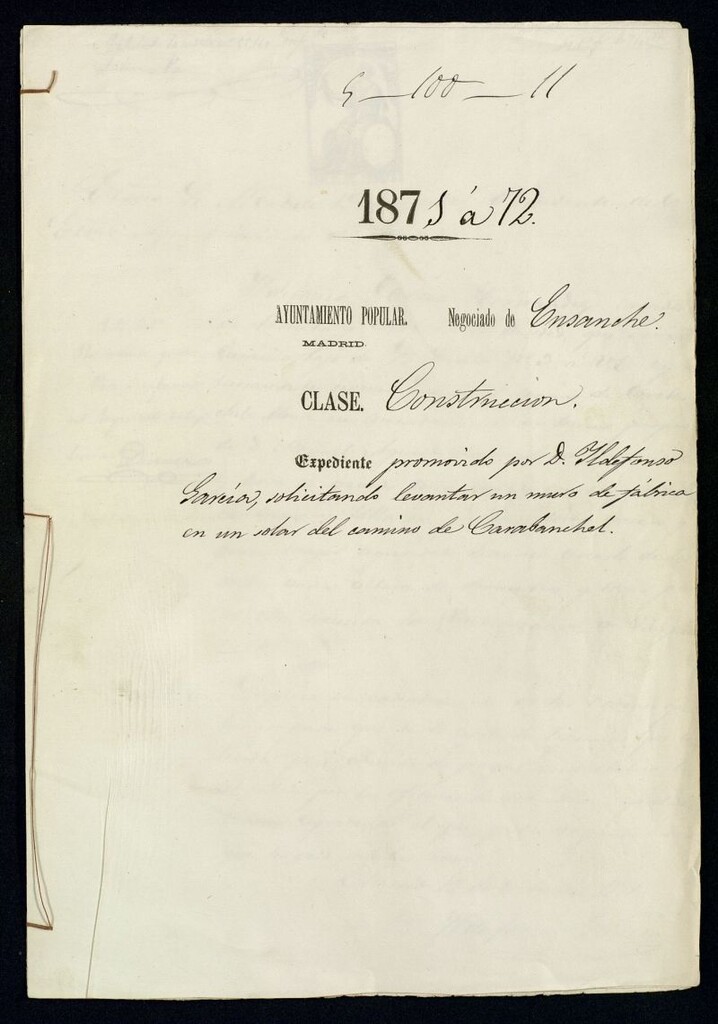 5-100-11
1871 á 72.
AYUNTAMIENTO POPULAR. Negociado de Ensanche.
MADRID.
CLASE. Construccion.
Expediente promovido por D. Ildefonso
García, solicitando levantar un muro de fábrica
en un solar del camino de Carabanchel.